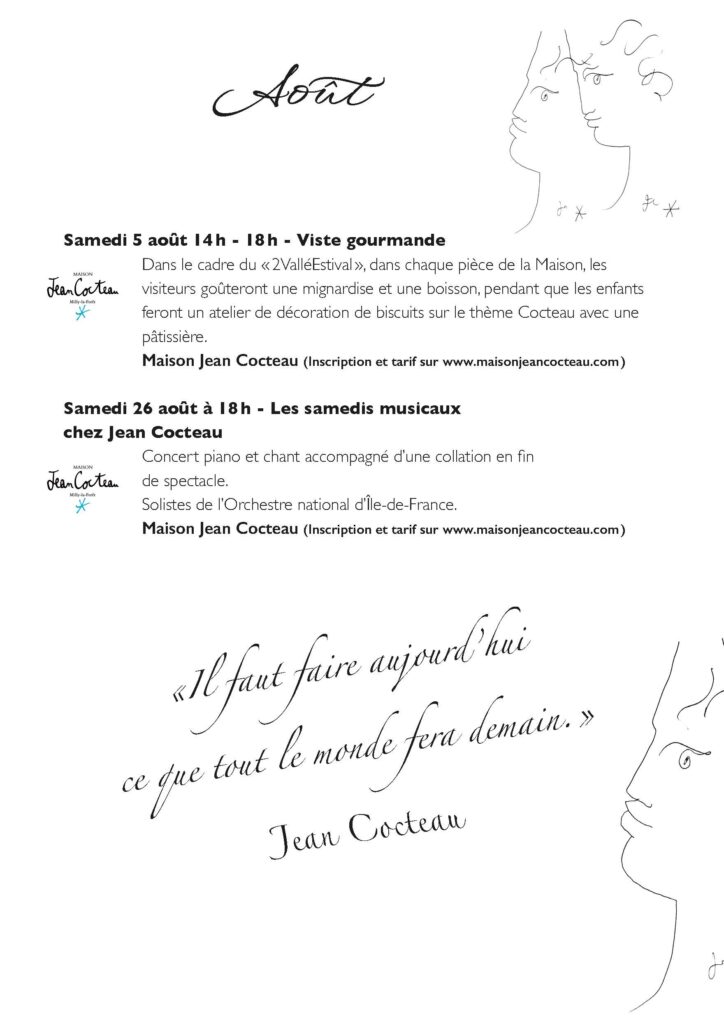 Août
Samedi 5 août 14h - 18h - Viste gourmande
Dans le cadre du «2ValléEstival», dans chaque pièce de la Maison, les
MAISON
Jean Cocteau
Milly-la-Forêt
visiteurs goûteront une mignardise et une boisson, pendant que les enfants
feront un atelier de décoration de biscuits sur le thème Cocteau avec une
pâtissière.
Maison Jean Cocteau (Inscription et tarif sur www.maisonjeancocteau.com)
Samedi 26 août à 18h - Les samedis musicaux
chez Jean Cocteau
Concert piano et chant accompagné d'une collation en fin
MAISON
Jean Cocteau
Milly-la-Forêt
de spectacle.
Solistes de l'Orchestre national d'Île-de-France.
Maison Jean Cocteau (Inscription et tarif sur www.maisonjeancocteau.com)
«Il faut faire aujourd'hui
ce que tout le monde fera demain.»
Jean Cocteau